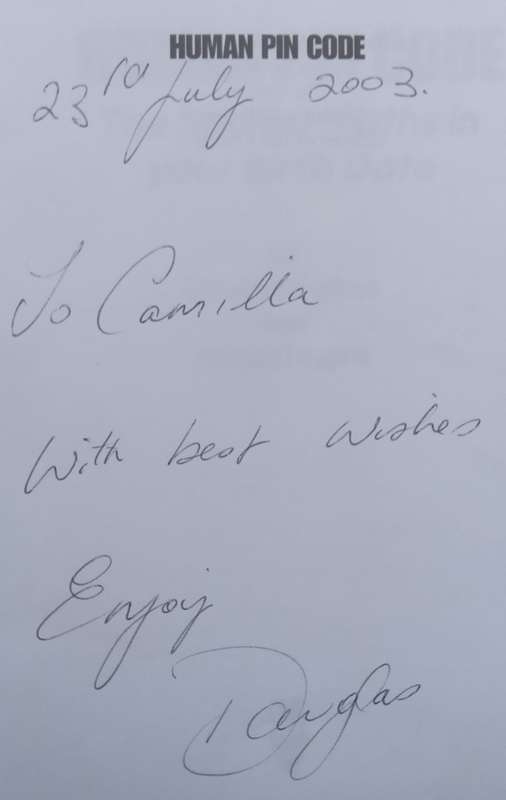 HUMAN PIN CODE
23rd July 2003.
To Camilla
With best wishes
Enjoy
Douglas